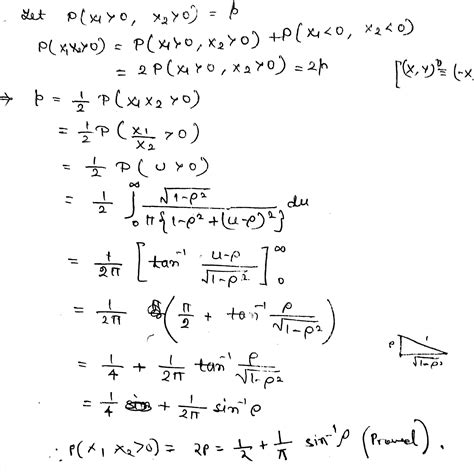 Let P(x₁>0, x₂>0) = p
P(x₁x₂>0) = P(x₁>0, x₂>0) + P(x₁<0, x₂<0)
= 2P(x₁>0, x₂>0) = 2p [(x, y) ᴰ= (-x,
⇒ p = 1/2 P(x₁x₂>0)
= 1/2 P(x₁/x₂ > 0)
= 1/2 P(U>0)
= 1/2 ∫₀^∞ √(1-ρ²) / π{1-ρ²+(u-ρ)²} du
= 1/2π [tan⁻¹ (u-ρ)/√(1-ρ²)]₀^∞
= 1/2π (π/2 + tan⁻¹ ρ/√(1-ρ²))
= 1/4 + 1/2π tan⁻¹ ρ/√(1-ρ²)
ρ 1 √(1-ρ²)
= 1/4 + 1/2π sin⁻¹ρ
∴ P(x₁ x₂>0) = 2p = 1/2 + 1/π sin⁻¹ρ (Proved).